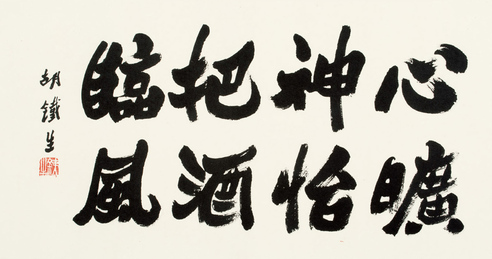 心曠
神怡
把酒
臨風
胡鐵生